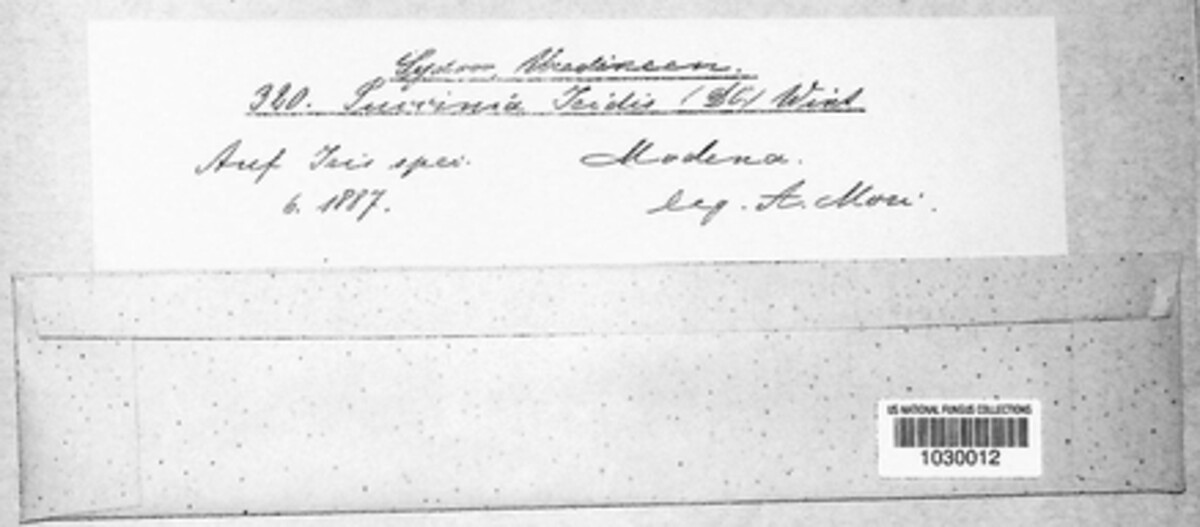 Sydow, Uredineen.
320. Puccinia Iridis (DC) Wint
Auf Iris spec. Modena.
6. 1887. leg. A. Mori.
US NATIONAL FUNGUS COLLECTIONS
1030012